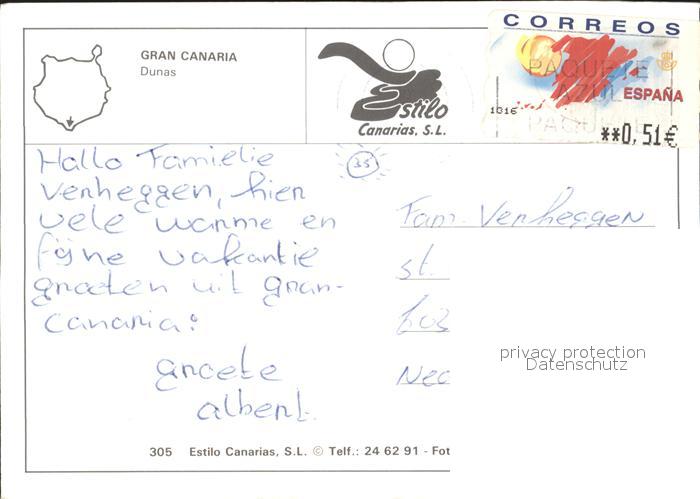 GRAN CANARIA
Dunas
Estilo
Canarias, S.L.
CORREOS
PAQUETE
AZUL
ESPAÑA
1016
**0,51€
Hallo Famielie
Verheggen, hier
vele warme en
fijne vakantie
groeten uit Gran-
Canaria:
groete
albert.
33
Fam. Verheggen
st.
603
Ned
privacy protection
Datenschutz
305 Estilo Canarias, S.L. © Telf.: 24 62 91 - Fot